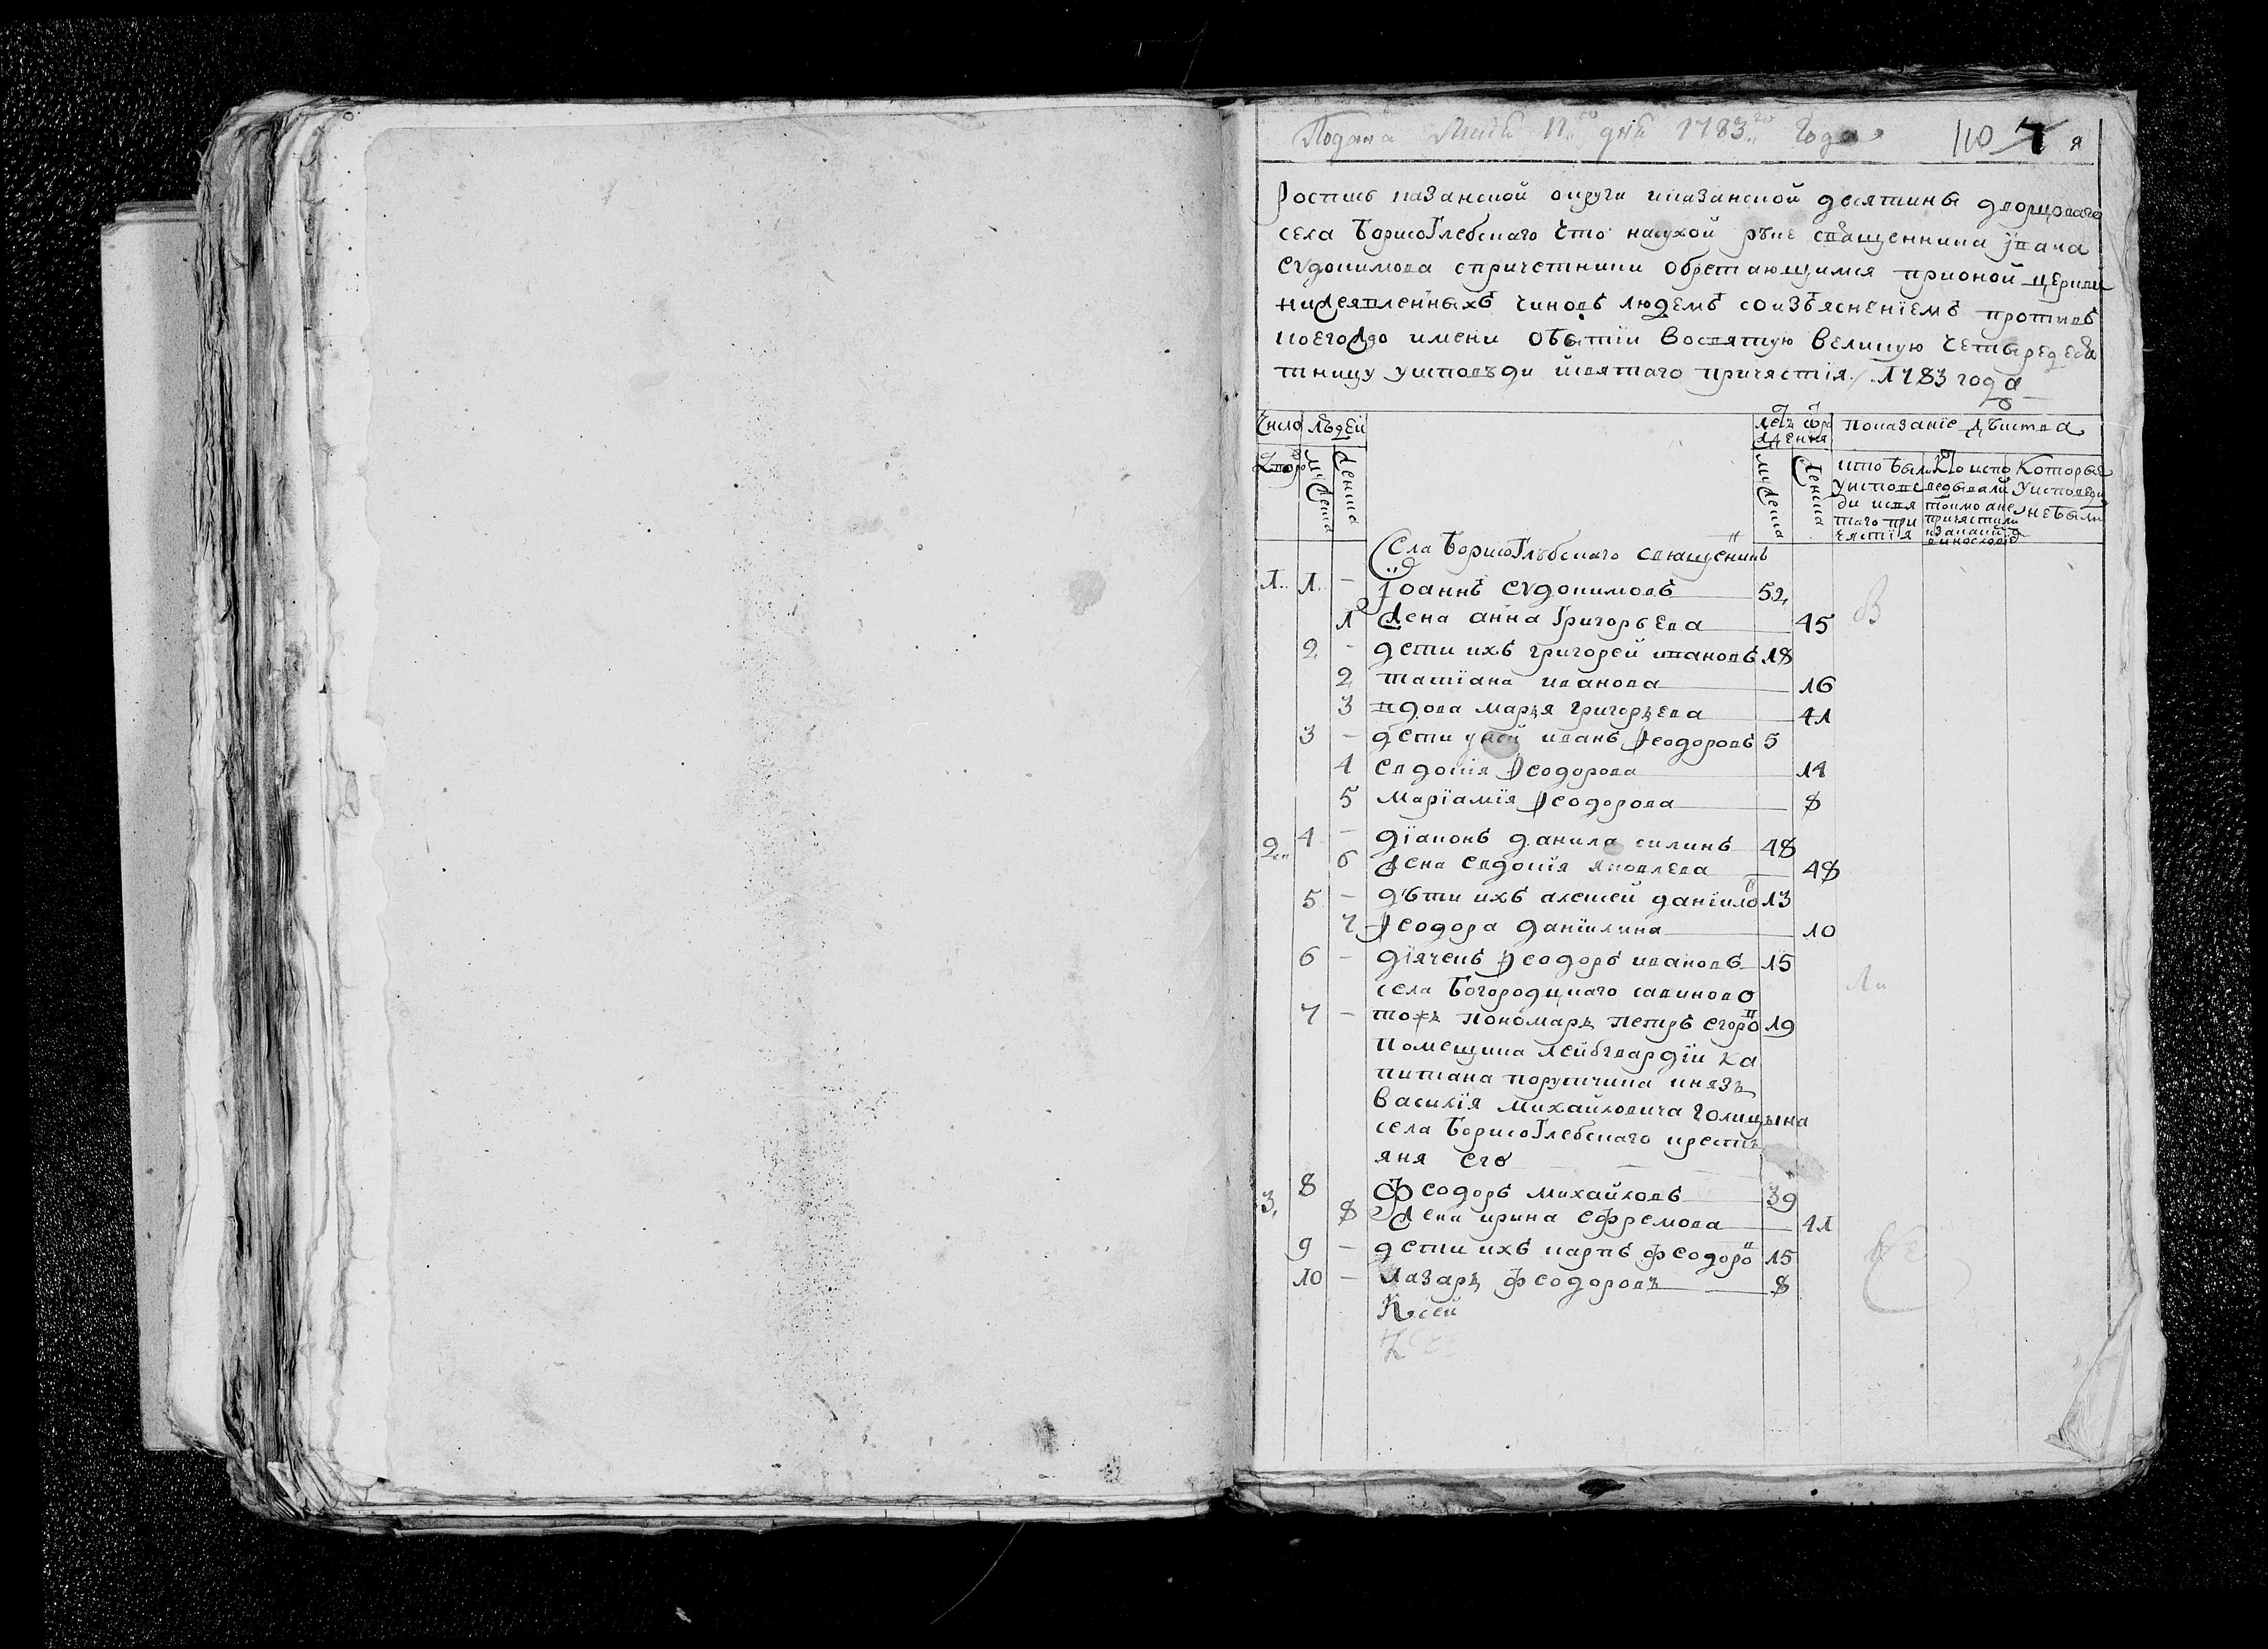 Подана 11го дня 1783го года 110 7 я
Роспись казанской округи и казанской десятины дворцоваго
села БорисоГлебскаго что насухой рѣке священника Iвана
Евдокимова спричетники обретающимся при оной церкви
нижеявленныхъ чиновъ людемъ со изъясненїемъ противъ
коегождо имени о бытїи во святую великую четыредеся
тницу у исповѣди и святаго причастїя. 1783 года
Число людей
летъ от рождения
показанїе действа
Дворо
мужеска
женска
мужеска
женска
кто был
у исповѣ
ди и свя
таго при
частїя
Кто испо
ведывали
токмо а не
причастили
Которые
у исповеди
не были
Села БорисоГлѣбскаго священникъ
1 1 - Iоаннъ Евдокимовъ 52
1 Жена анна Григорьева 45
2 - дети ихъ григорей ивановъ 18
2 татїана иванова 16
3 вдова марья григорьева 41
3 - дети у ней иванъ Ѳеодоровъ 5
4 Евдокїя Ѳеодорова 14
5 марїамїя Ѳеодорова 8
2 4 - дїаконъ данила силинъ 48
6 жена Евдокїя яковлева 48
5 - дѣти ихъ алексей данїило 13
7 Ѳеодора данїилина 10
6 - дїячекъ Ѳеодоръ ивановъ 15
села Богородцкаго савиново
7 - тожъ пономарь петръ егоров 19
помещика лейбгвардїи ка
питана порутчика князь
василїя михайловича голицына
села БорисоГлебскаго кресть
яня его
3 8 Феодоръ михайловъ 39
8 Жена ирина ефремова 41
9 - дети ихъ карпъ феодоров 15
10 - лазарь феодоровъ 8